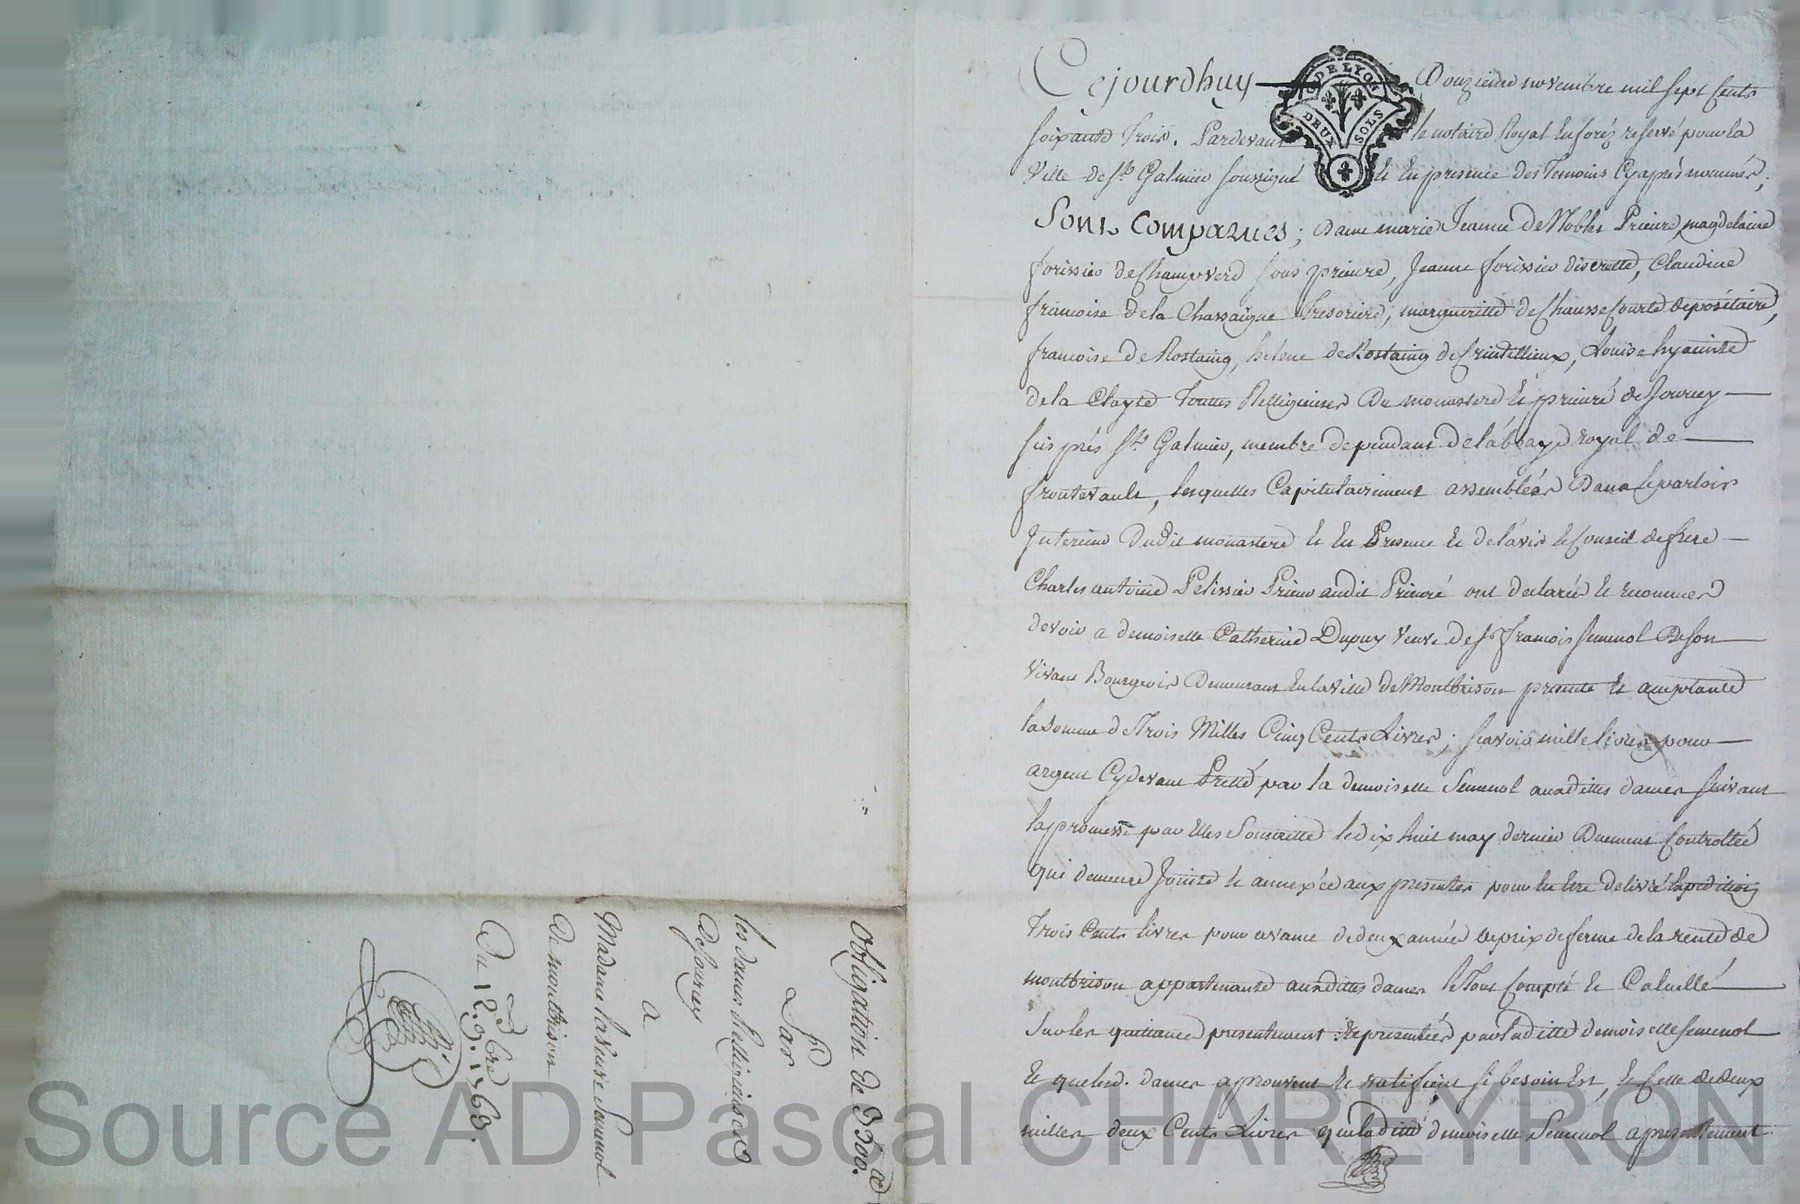 Cejourdhuy Douzieme novembre mil sept Cents
G. DE LYON
DEUX SOLS
soixante Trois. Pardevant le notaire Royal En forés reservé pour la
Ville de St. Galmier soussigné et En presence des Temoins Cyaprés nommés,
Sont Comparues; Dame marie Jeanne de Nobles Prieure, magdelaine
forissier de Champverd sous prieure, Jeanne forissier discrette, Claudine
francoise de la Chassaigne Tresoriere, margueritte de Chaussecourte depositaire,
francoise de Rostaing, helene de Rostaing de , Louise hyacinte
de la Clayte Touttes Relligieuses Du monastere et prieuré de Jourcey
sis prés St. Galmier, membre dependant de l'abbaye royal de
frontevault, lesquelles Capitulairement assembléés Dans le parloir
Interieur Dudit monastere et En Presence et de l'avis et Conseil de frere
Charles antoine Pelissier Prieur audit Prieuré ont declaré et reconnu
devoir a demoiselle Catherine Dupuy Veuve de Sr. francois Semenol De son
Vivant Bourgeois Demeurant En la Ville de Montbrison presente et acceptante
la somme de Trois Milles Cinq Cents Livres; scavoir mille livres pour
argent Cydevant Pretté par la demoiselle Semenol auxdittes dames suivant
la promesse par Elles Souscritte le dix huit may dernier Duement Controllée
qui demeure Jointe et annexée aux presentes pour En Etre delivré Expedition
Trois Cents livres pour avance de deux année de prix de ferme de la rente de
montbrison appartenante auxdites dames le Tout Compté et Calcullé
Sur les quittances presentement Representées par laditte demoiselle Semenol
Et que lesd. dames aprouvent et ratifient si besoin Est, et Celle de deux
milles deux Cents Livres que laditte demoiselle Semenol a presentement
obligation de 3500.
Par
les dames Relligieuses
de Jourcey
a
Madame la Veuve Semenol
de montbrison
Du 12. 9bre 1763.
Source AD Pascal CHAREYRON